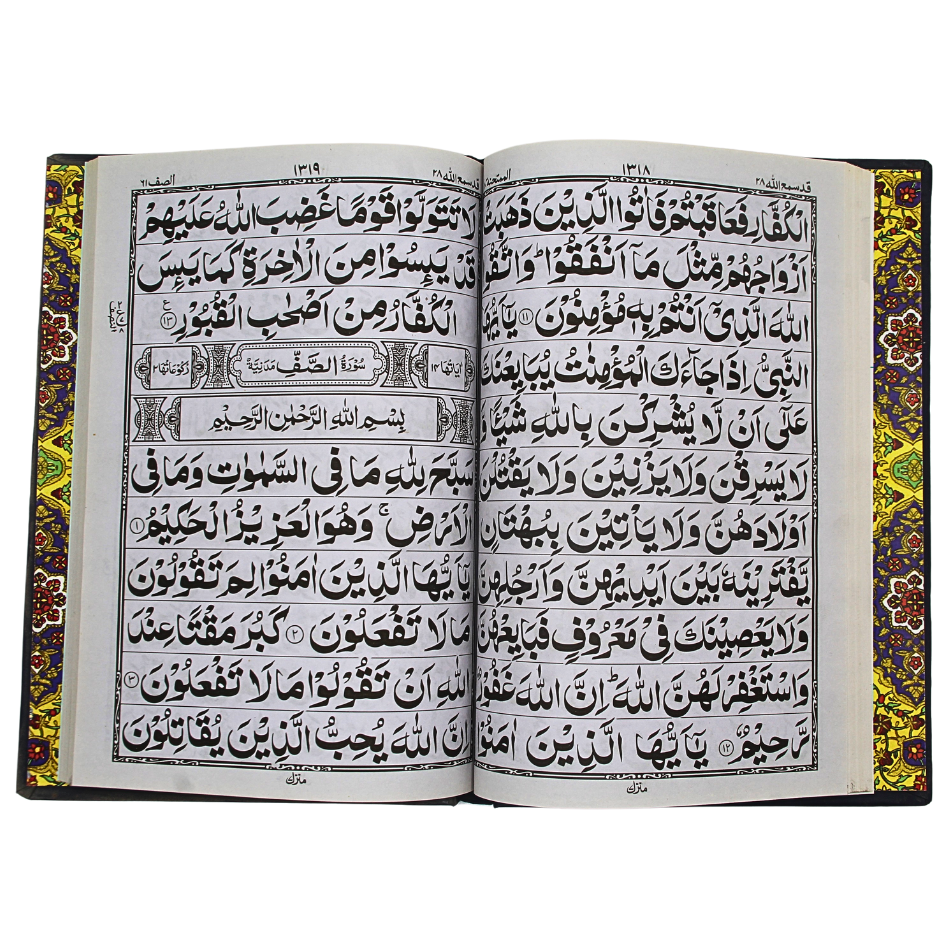 قد سمع الله ٢٨
١٣١٨
الممتحنة
الْكُفَّارِ فَعَاقَبْتُمْ فَاٰتُوا الَّذِيْنَ ذَهَبَتْ
اَزْوَاجُهُمْ مِّثْلَ مَاۤ اَنْفَقُوْا ؕ وَاتَّقُوا
اللّٰهَ الَّذِيْۤ اَنْتُمْ بِهٖ مُؤْمِنُوْنَ ۝۱۱ يٰۤاَيُّهَا
النَّبِيُّ اِذَا جَآءَكَ الْمُؤْمِنٰتُ يُبَايِعْنَكَ
عَلٰۤى اَنْ لَّا يُشْرِكْنَ بِاللّٰهِ شَيْـًٔا وَّ
لَا يَسْرِقْنَ وَلَا يَزْنِيْنَ وَلَا يَقْتُلْنَ
اَوْلَادَهُنَّ وَلَا يَاْتِيْنَ بِبُهْتَانٍ
يَّفْتَرِيْنَهٗ بَيْنَ اَيْدِيْهِنَّ وَاَرْجُلِهِنَّ
وَلَا يَعْصِيْنَكَ فِيْ مَعْرُوْفٍ فَبَايِعْهُنَّ
وَاسْتَغْفِرْ لَهُنَّ اللّٰهَ ؕ اِنَّ اللّٰهَ غَفُوْرٌ
رَّحِيْمٌ ۝۱۲ يٰۤاَيُّهَا الَّذِيْنَ اٰمَنُوْا
منزل
قد سمع الله ٢٨
١٣١٩
الصف ٦١
لَا تَتَوَلَّوْا قَوْمًا غَضِبَ اللّٰهُ عَلَيْهِمْ
قَدْ يَىِٕسُوْا مِنَ الْاٰخِرَةِ كَمَا يَىِٕسَ
الْكُفَّارُ مِنْ اَصْحٰبِ الْقُبُوْرِ ۝۱۳ ع
اٰيَاتُهَا ١٤ سُوْرَةُ الصَّفِّ مَدَنِيَّةٌ رُكُوْعَاتُهَا ٢
بِسْمِ اللّٰهِ الرَّحْمٰنِ الرَّحِيْمِ
سَبَّحَ لِلّٰهِ مَا فِي السَّمٰوٰتِ وَمَا فِي
الْاَرْضِ ۚ وَهُوَ الْعَزِيْزُ الْحَكِيْمُ ۝۱
يٰۤاَيُّهَا الَّذِيْنَ اٰمَنُوْا لِمَ تَقُوْلُوْنَ
مَا لَا تَفْعَلُوْنَ ۝۲ كَبُرَ مَقْتًا عِنْدَ
اللّٰهِ اَنْ تَقُوْلُوْا مَا لَا تَفْعَلُوْنَ ۝۳
اِنَّ اللّٰهَ يُحِبُّ الَّذِيْنَ يُقَاتِلُوْنَ
منزل